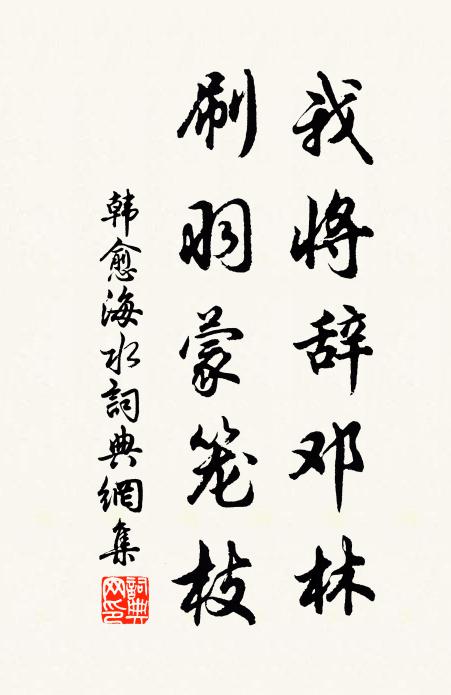 我将辞邓林
刷羽蒙笼枝
韩愈海水詞典網集
詞典网印